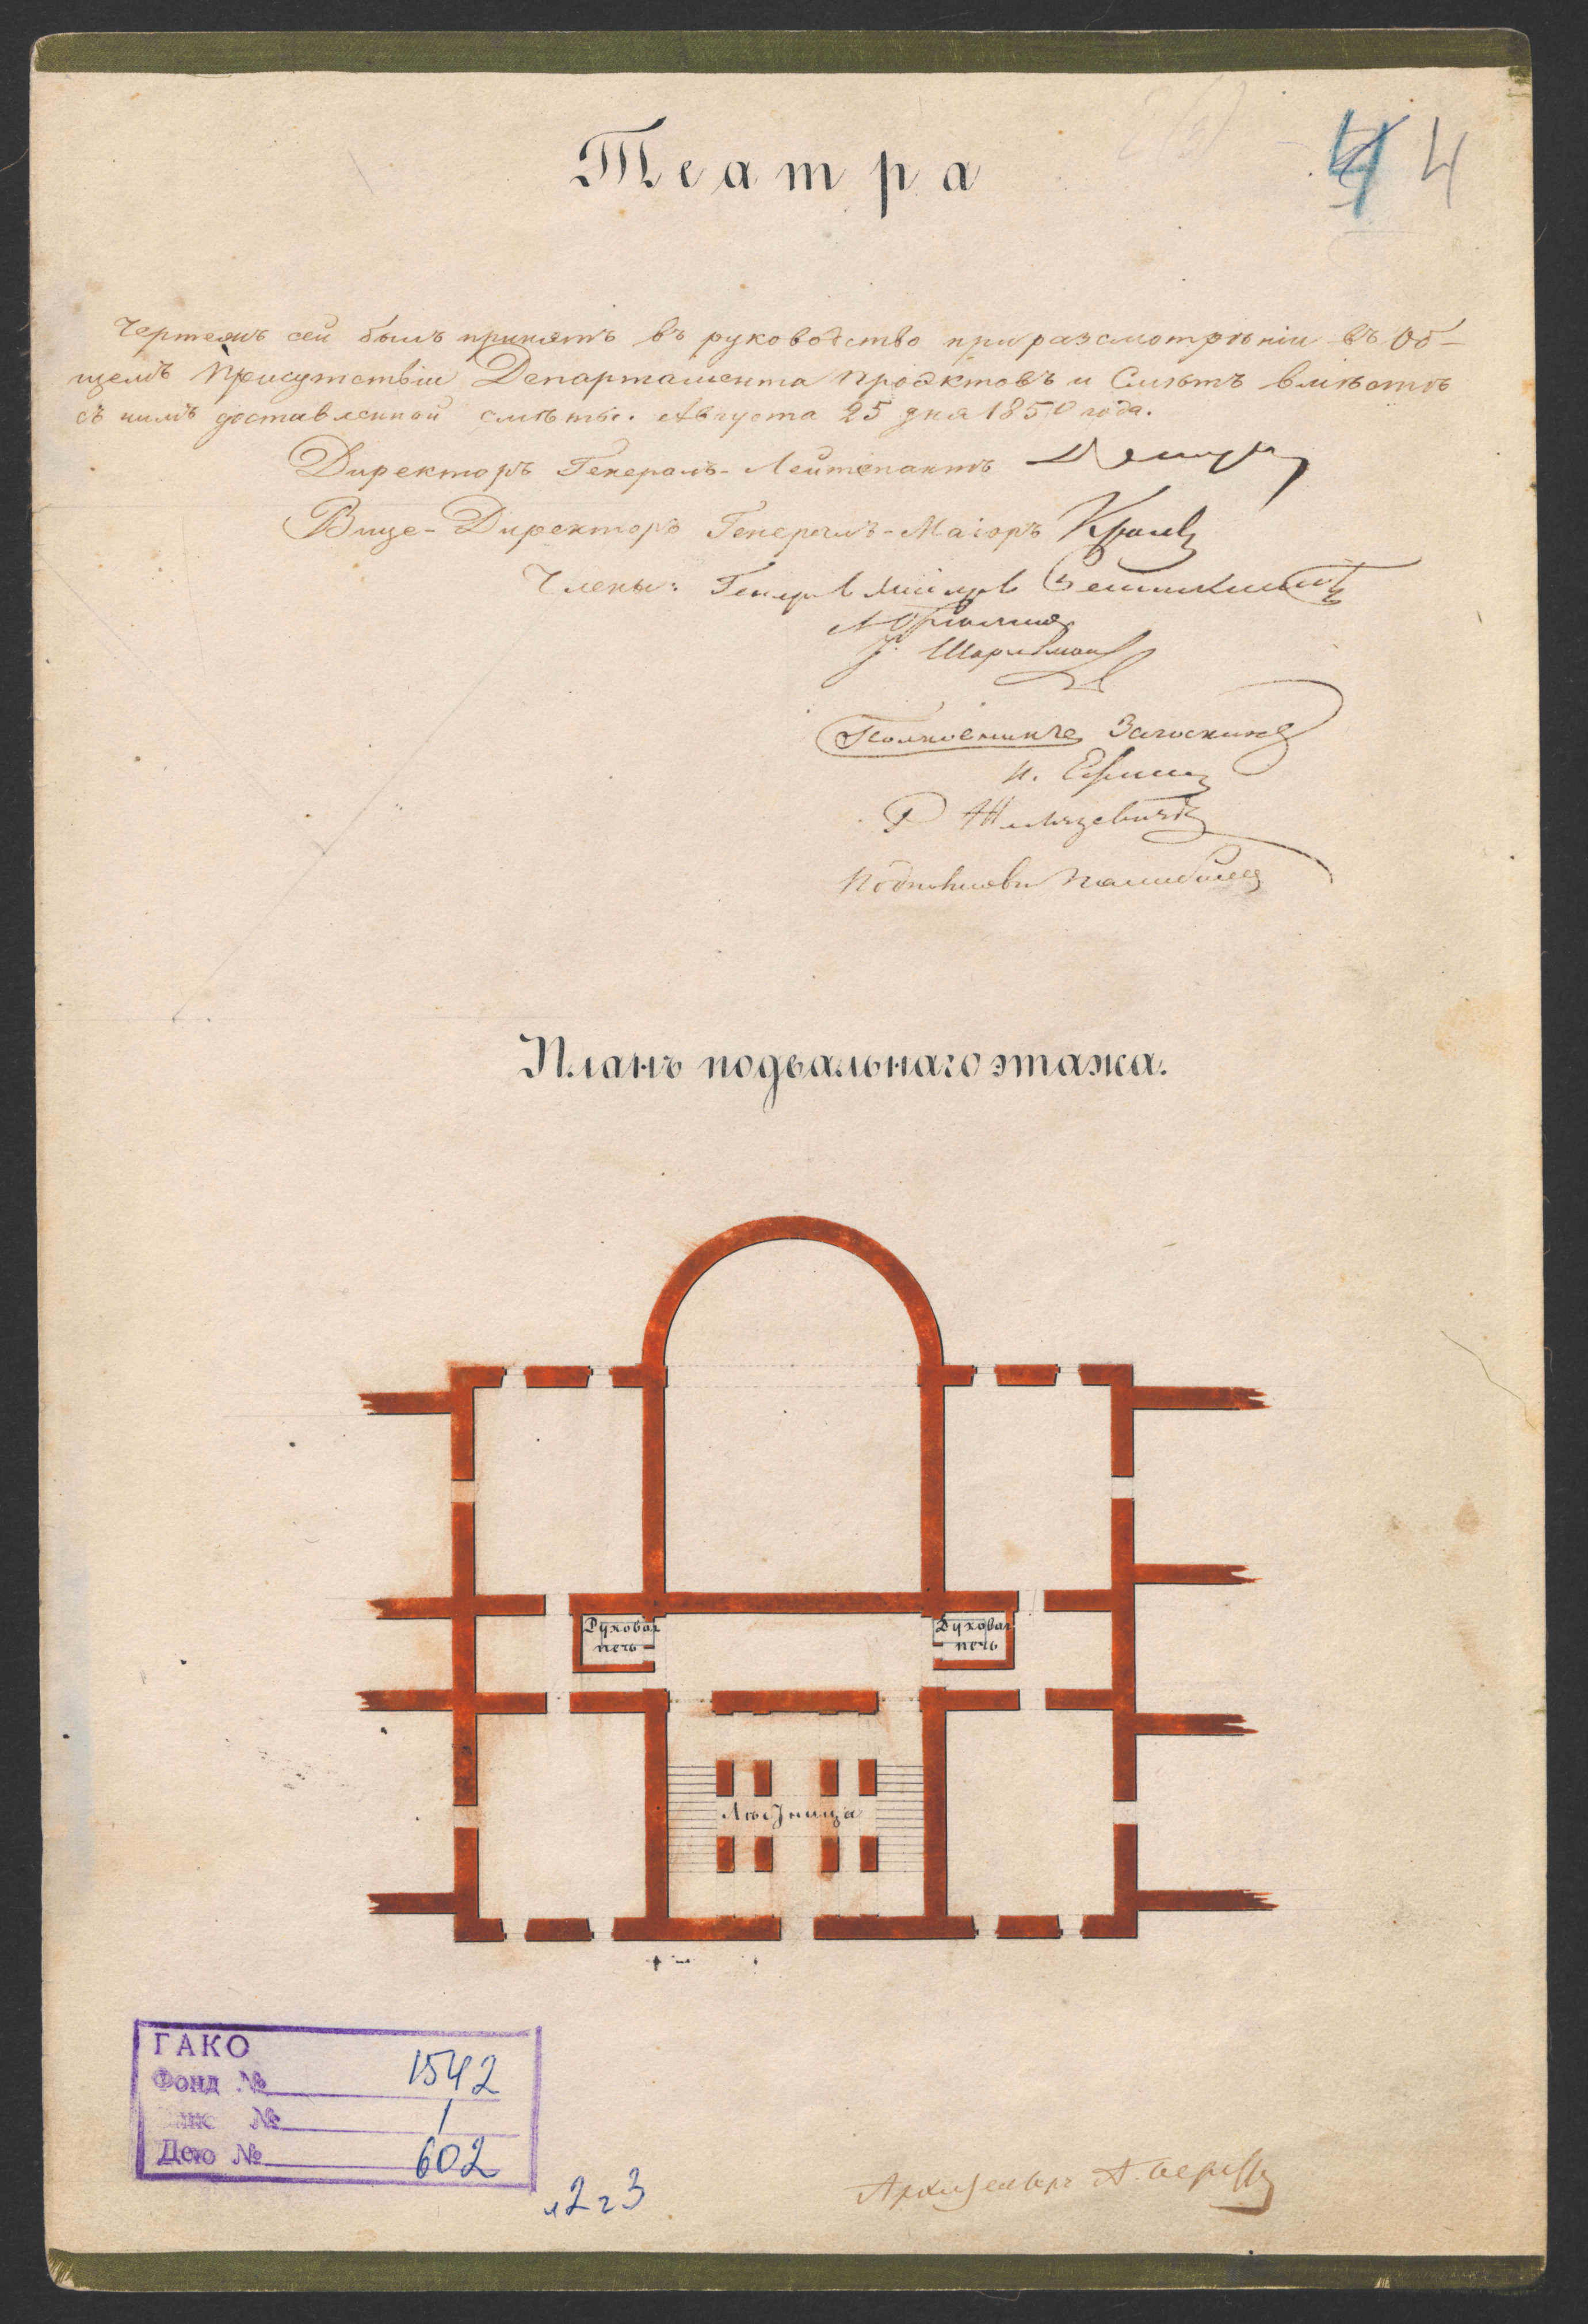 4 4
Театра
Чертежъ сей былъ принятъ въ руководство при разсмотрѣніи въ Об-
щемъ Присутствіи Департамента Проэктовъ и Смѣтъ вмѣстѣ
съ нимъ доставленной смѣты. Августа 25 дня 1850 года.
Директоръ Генералъ-Лейтенантъ
Вице-Директоръ Генералъ-Маіоръ
Члены:
Шарлемань
Полковникъ Загоскинъ
Р Желязевичъ
Планъ подвальнаго этажа.
Духовая печь
Духовая печь
Лѣстница
ГАКО
Фонд № 1542
№ 1
Дело № 602
л 2 г 3
Архитекторъ А.